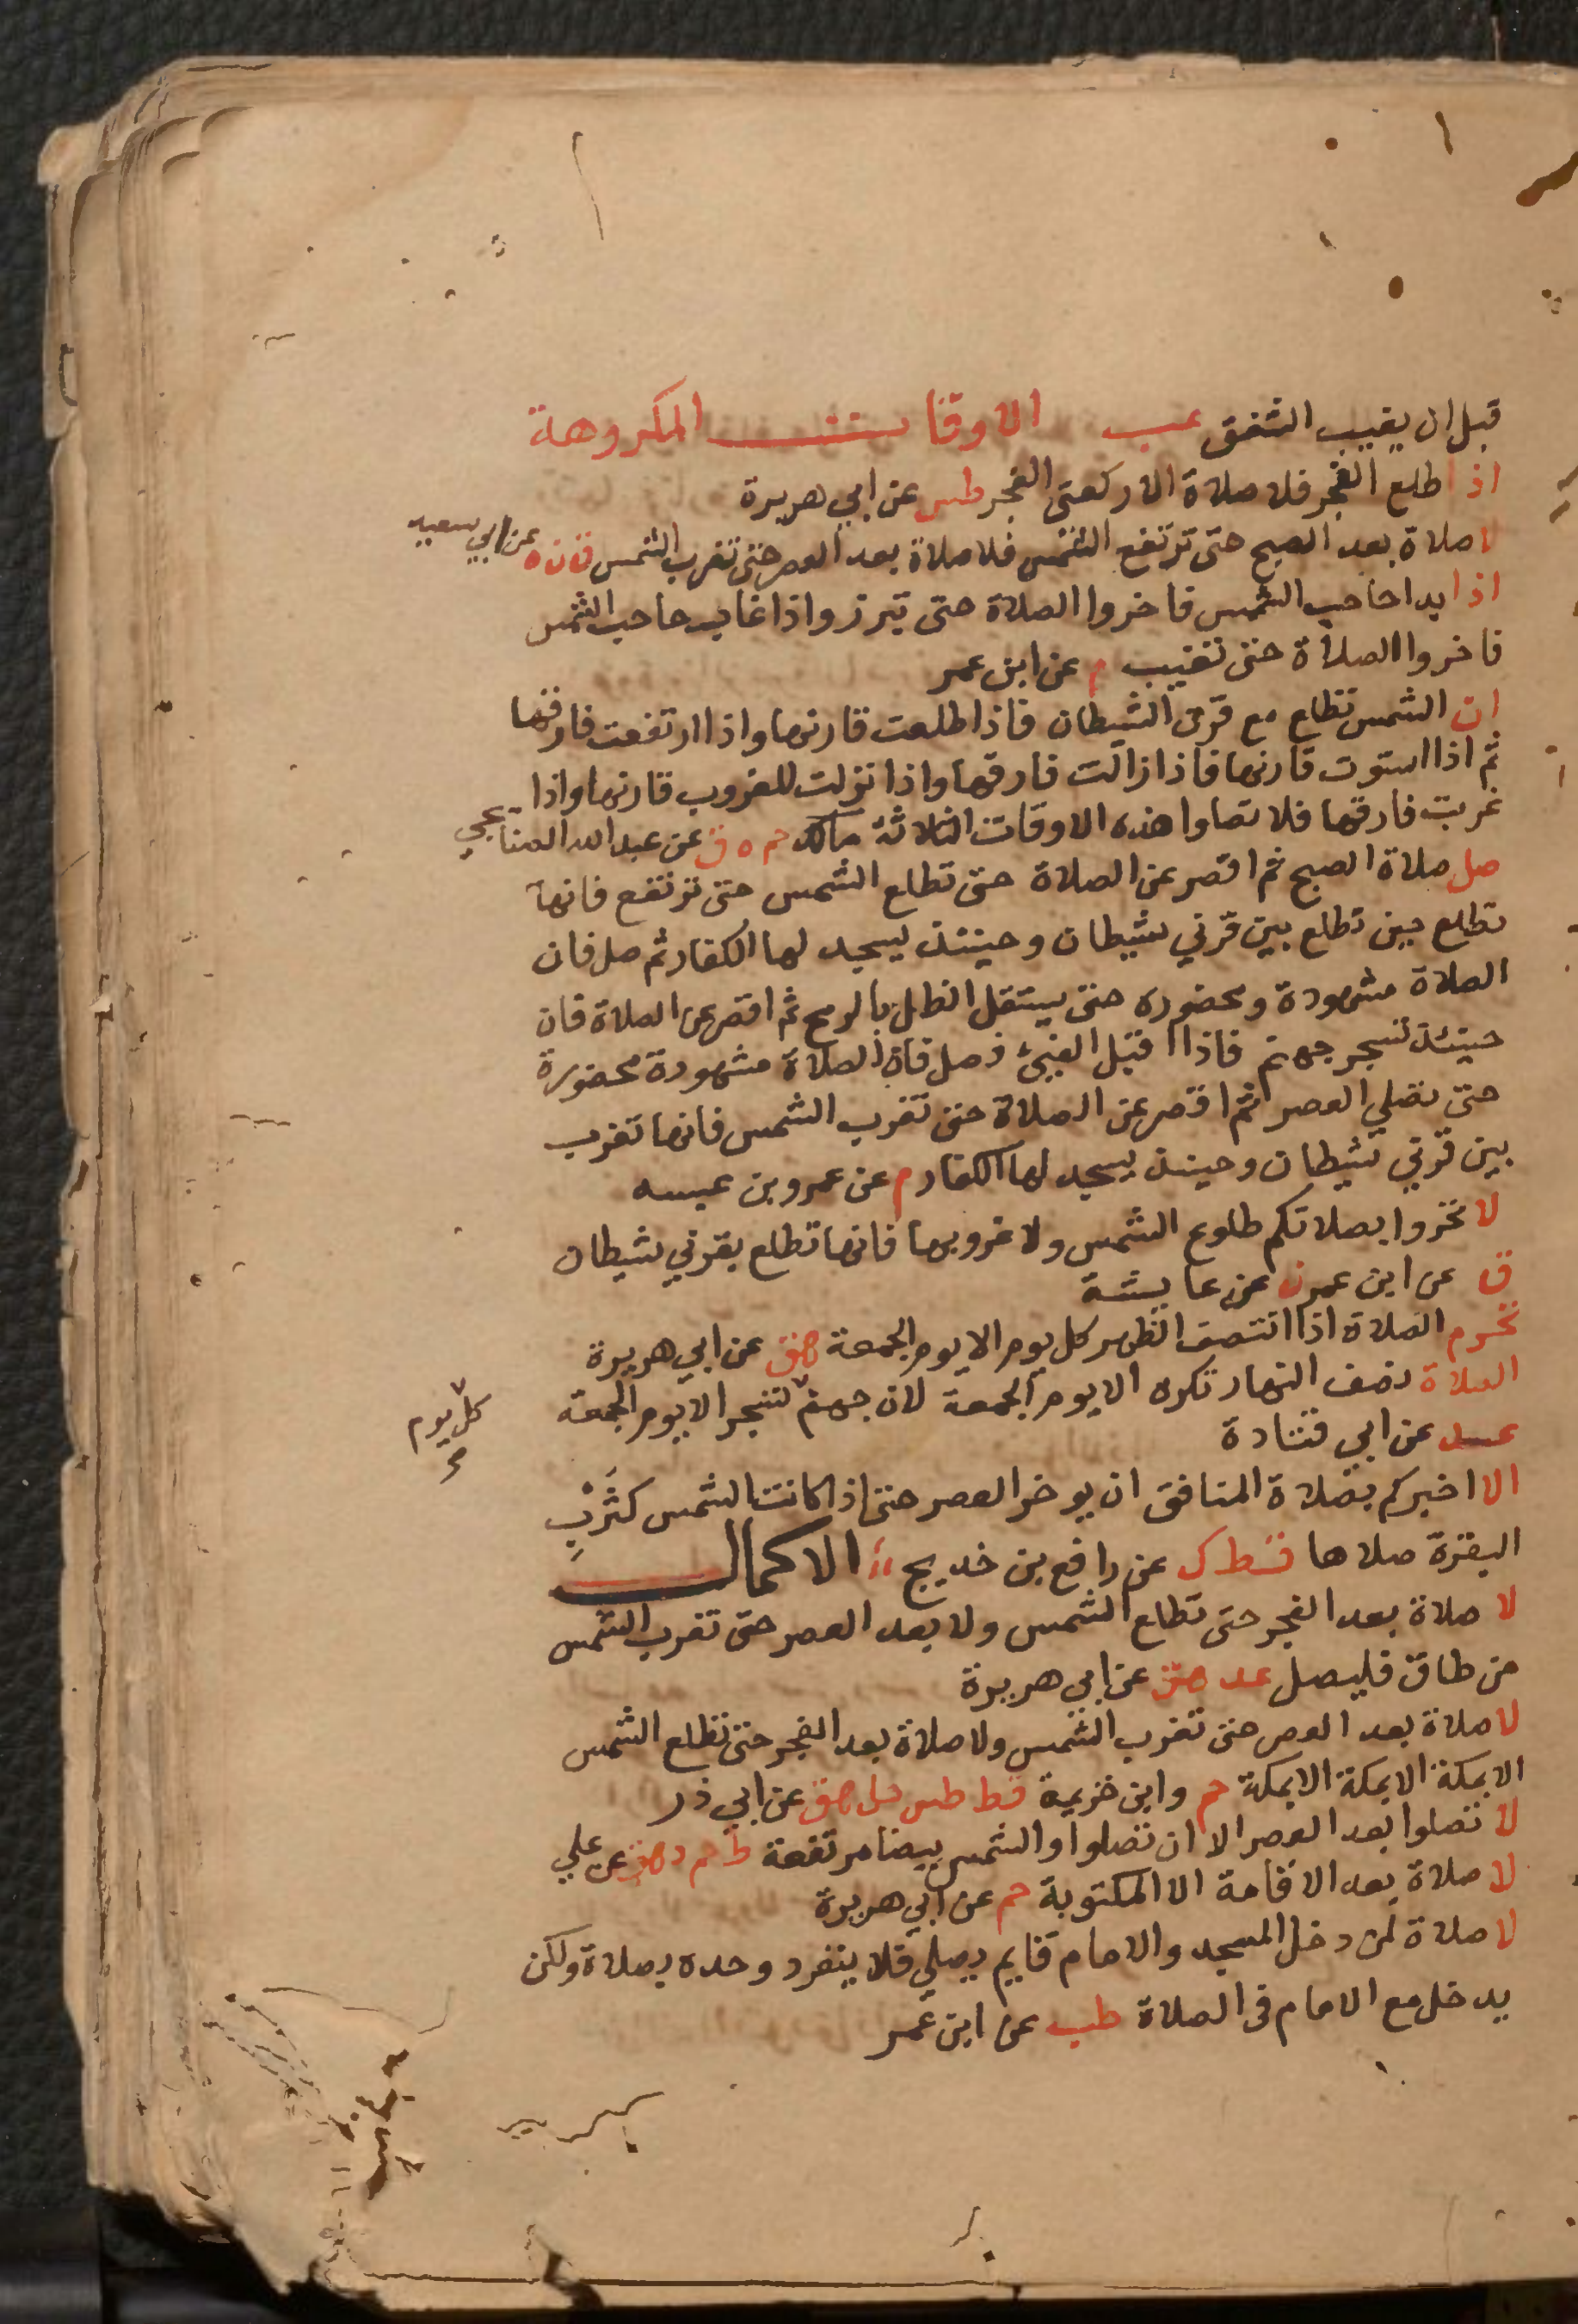 قبل ان يغيب الشفق عب الاوقات المكروهة
اذا طلع الفجر فلا صلاة الا ركعتي الفجر طس عن ابي هريرة
لا صلاة بعد الصبح حتى ترتفع الشمس فلا صلاة بعد العصر حتى تغرب الشمس ق ن ه عن ابي سعيد
اذا بدا حاجب الشمس فاخروا الصلاة حتى تبرز واذا غاب حاجب الشمس
فاخروا الصلاة حتى تغيب م عن ابن عمر
ان الشمس تطلع مع قرن الشيطان فاذا طلعت قارنها واذا ارتفعت فارقها
ثم اذا استوت قارنها فاذا زالت فارقها واذا نزلت للغروب قارنها واذا
غربت فارقها فلا تصلوا هذه الاوقات الثلاثة مالك حم ه ق عن عبد الله الصنابحي
صل صلاة الصبح ثم اقصر عن الصلاة حتى تطلع الشمس حتى ترتفع فانها
تطلع حين تطلع بين قرني شيطان وحينئذ يسجد لها الكفار ثم صل فان
الصلاة مشهودة ومحضوره حتى يستقل الظل بالرمح ثم اقصر عن الصلاة فان
حينئذ تسجر جهنم فاذا اقبل الفيئ فصل فان الصلاة مشهودة محضورة
حتى تصلي العصر ثم اقصر عن الصلاة حتى تغرب الشمس فانها تغرب
بين قرني شيطان وحينئذ يسجد لها الكفار م عن عمرو بن عبسه
لا تحروا بصلاتكم طلوع الشمس ولا غروبها فانها تطلع بقرني شيطان
ق عن ابن عمر ن عن عايشة
تحرم الصلاة اذا انتصف الظهر كل يوم الا يوم الجمعة هق عن ابي هريرة
الصلاة نصف النهار تكره الا يوم الجمعة لان جهنم تسجر الا يوم الجمعة
كل يوم
عد عن ابي قتادة
الا اخبركم بصلاة المنافق ان يوخر العصر حتى اذا كانت الشمس كثرب
البقرة صلاها قط ك عن رافع بن خديج الاكمال
لا صلاة بعد الفجر حتى تطلع الشمس ولا بعد العصر حتى تغرب الشمس
من طاف فليصل عد هق عن ابي هريرة
لا صلاة بعد العصر حتى تغرب الشمس ولا صلاة بعد الفجر حتى تطلع الشمس
الا بمكة الا بمكة الا بمكة حم وابن خزيمة قط طس حل هق عن ابي ذر
لا تصلوا بعد العصر الا ان تصلوا والشمس بيضا مرتفعة ط حم د هق عن علي
لا صلاة بعد الاقامة الا المكتوبة حم عن ابي هريرة
لا صلاة لمن دخل المسجد والامام قايم يصلي فلا ينفرد وحده بصلاة ولكن
يدخل مع الامام في الصلاة طب عن ابن عمر